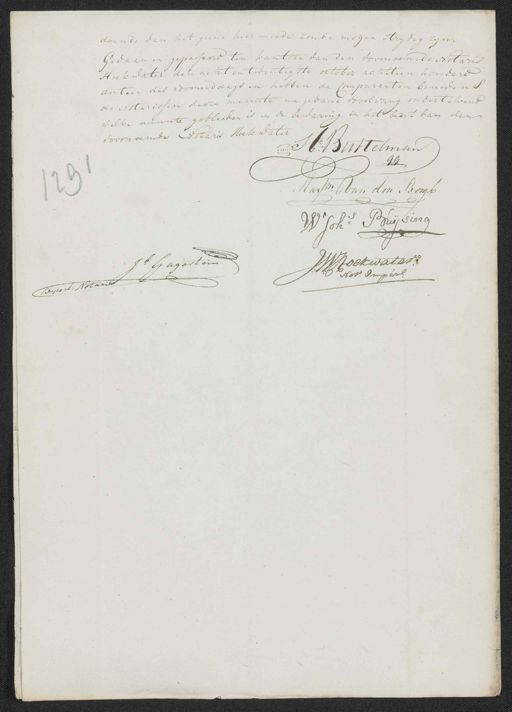 doende dan het geene hiermeede zoude mogen strydig zyn
Gedaan en gepasseerd ten kantore van den voornoemde Notaris
Hoekwater den achtentwintigste october achttien honderd
des voormiddags en hebben de Comparanten benevens
de Notarissen deze minute na gedane voorlezing onderteekend
welke minute gebleven is in de bewaring en het bezit van den
voornoemde Notaris Hoekwater
1291
H Buttelman
van den Bergh
Wm Johs Pruijsing
JW Hoekwater
Not Imperl
Js Gagestein
Notaris